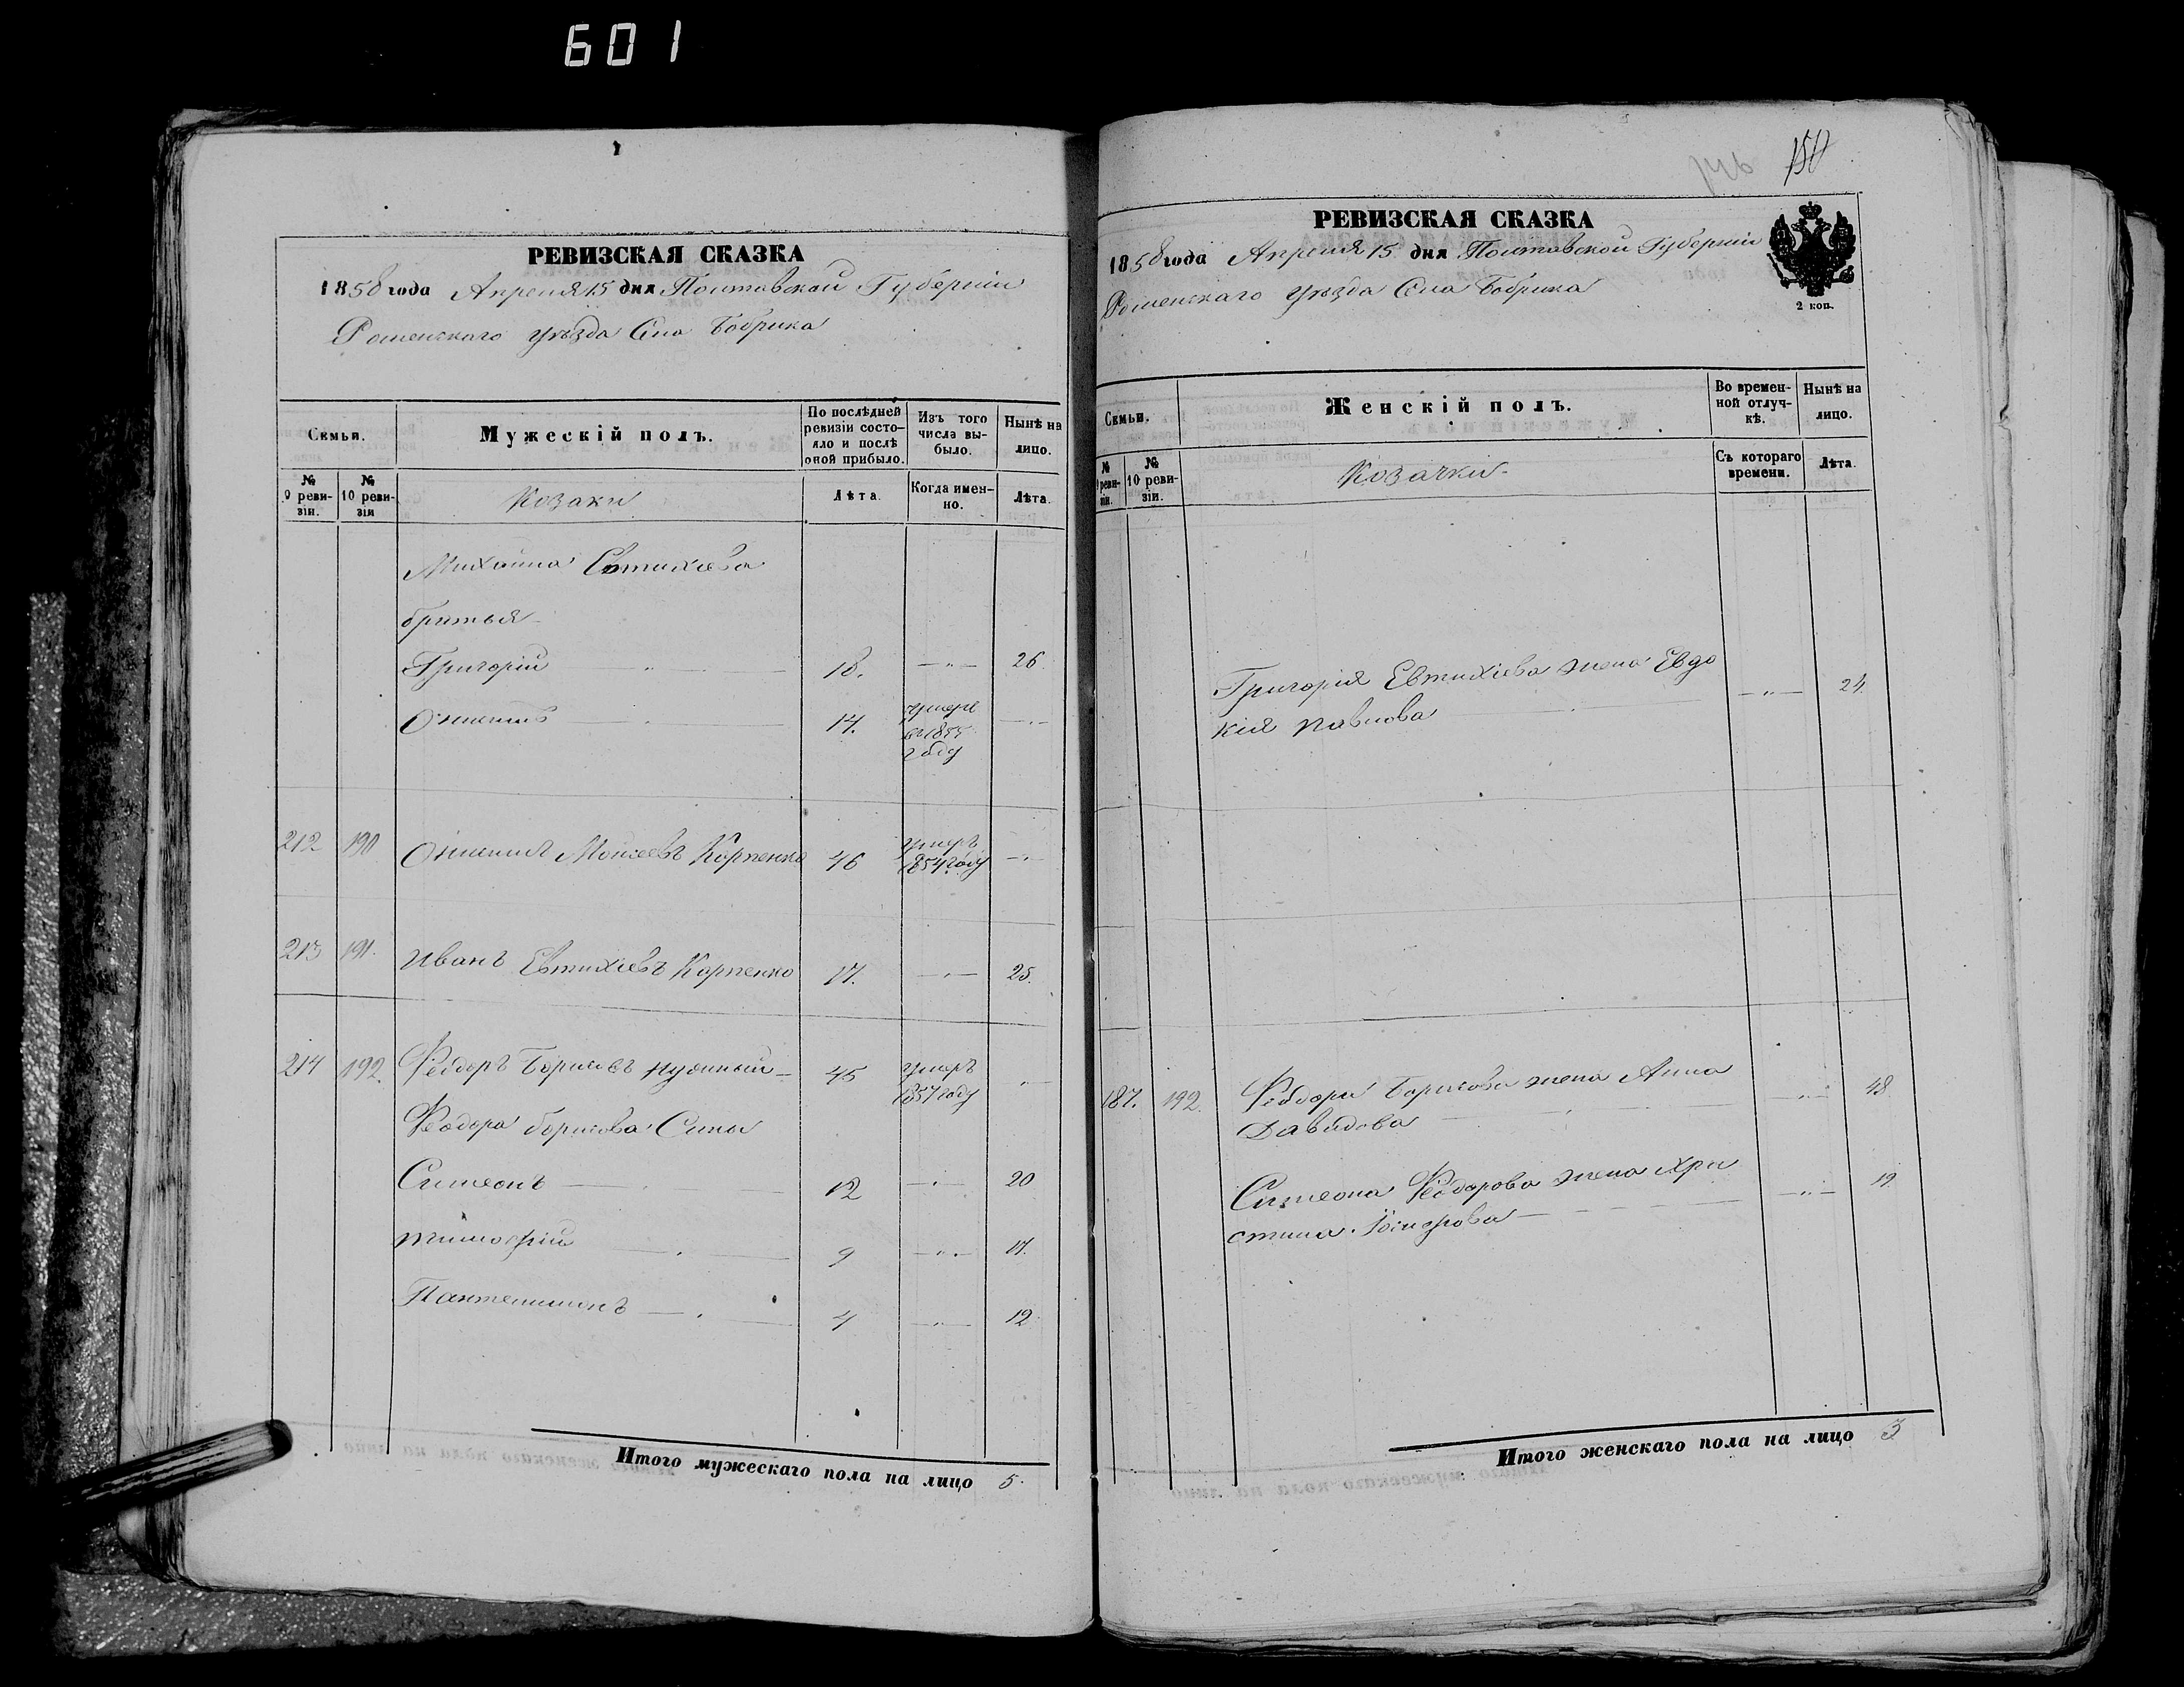 601
РЕВИЗСКАЯ СКАЗКА
1858 года Апреля 15 дня Полтавской Губерніи
Роменскаго уѣзда Села Бобрика
Семьи.
Мужескій полъ.
По послѣдней ревизіи состояло и послѣ оной прибыло.
Изъ того числа выбыло.
Нынѣ на лицо.
№ 9 ревизіи.
№ 10 ревизіи
Козаки
Лѣта.
Когда именно.
Лѣта.
Михаила Евтихіева
братья
Григорій 18. 26.
14. умре 1855 году
212 190 Моисеевъ Корпенко 46 умеръ 1854 году
213 191. Иванъ Евтихіевъ Корпенко 17. 25.
214 192. Феодоръ Борисовъ 45 умеръ 1857 году
Феодора Борисова Сины
Симеонъ 12 20
Тимофій 9 17.
Пантелимонъ 4 12
Итого мужескаго пола на лицо 5.
150
РЕВИЗСКАЯ СКАЗКА
1858 года Апреля 15 дня Полтавской Губерніи
Роменскаго уѣзда Села Бобрика
2 коп.
Семьи.
Женскій полъ.
Во временной отлучкѣ.
Нынѣ на лицо.
№ 9 ревизіи.
№ 10 ревизіи.
Козачки
Съ котораго времени.
Лѣта.
Григорія Евтихіева жена Евдо
кія Павлова 24.
187. 192. Феодора Борисова жена Анна
Давидова 48
Симеона Феодорова жена Хри
стина 19
Итого женскаго пола на лицо 3